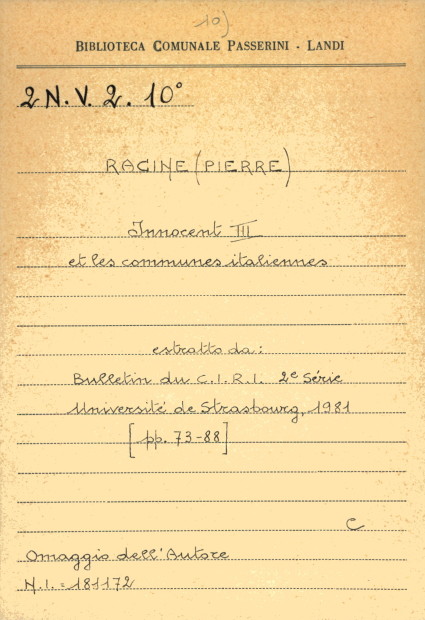 10)
BIBLIOTECA COMUNALE PASSERINI - LANDI
2 N. V. 2. 10°
RACINE (PIERRE)
Innocent III
et les communes italiennes
estratto da:
Bulletin du C.I.R.I. 2e Série
Université de Strasbourg, 1981
[pp. 73-88]
C
Omaggio dell'Autore
N.I. = 181172